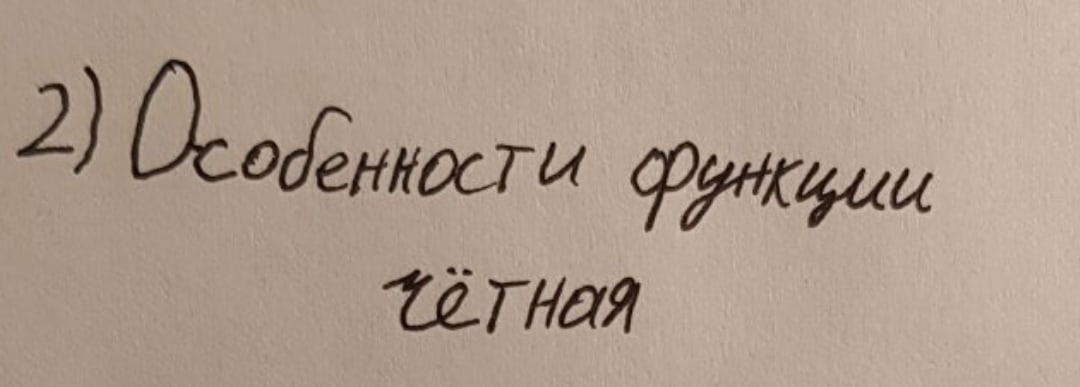 2) Особенности функции
чётная